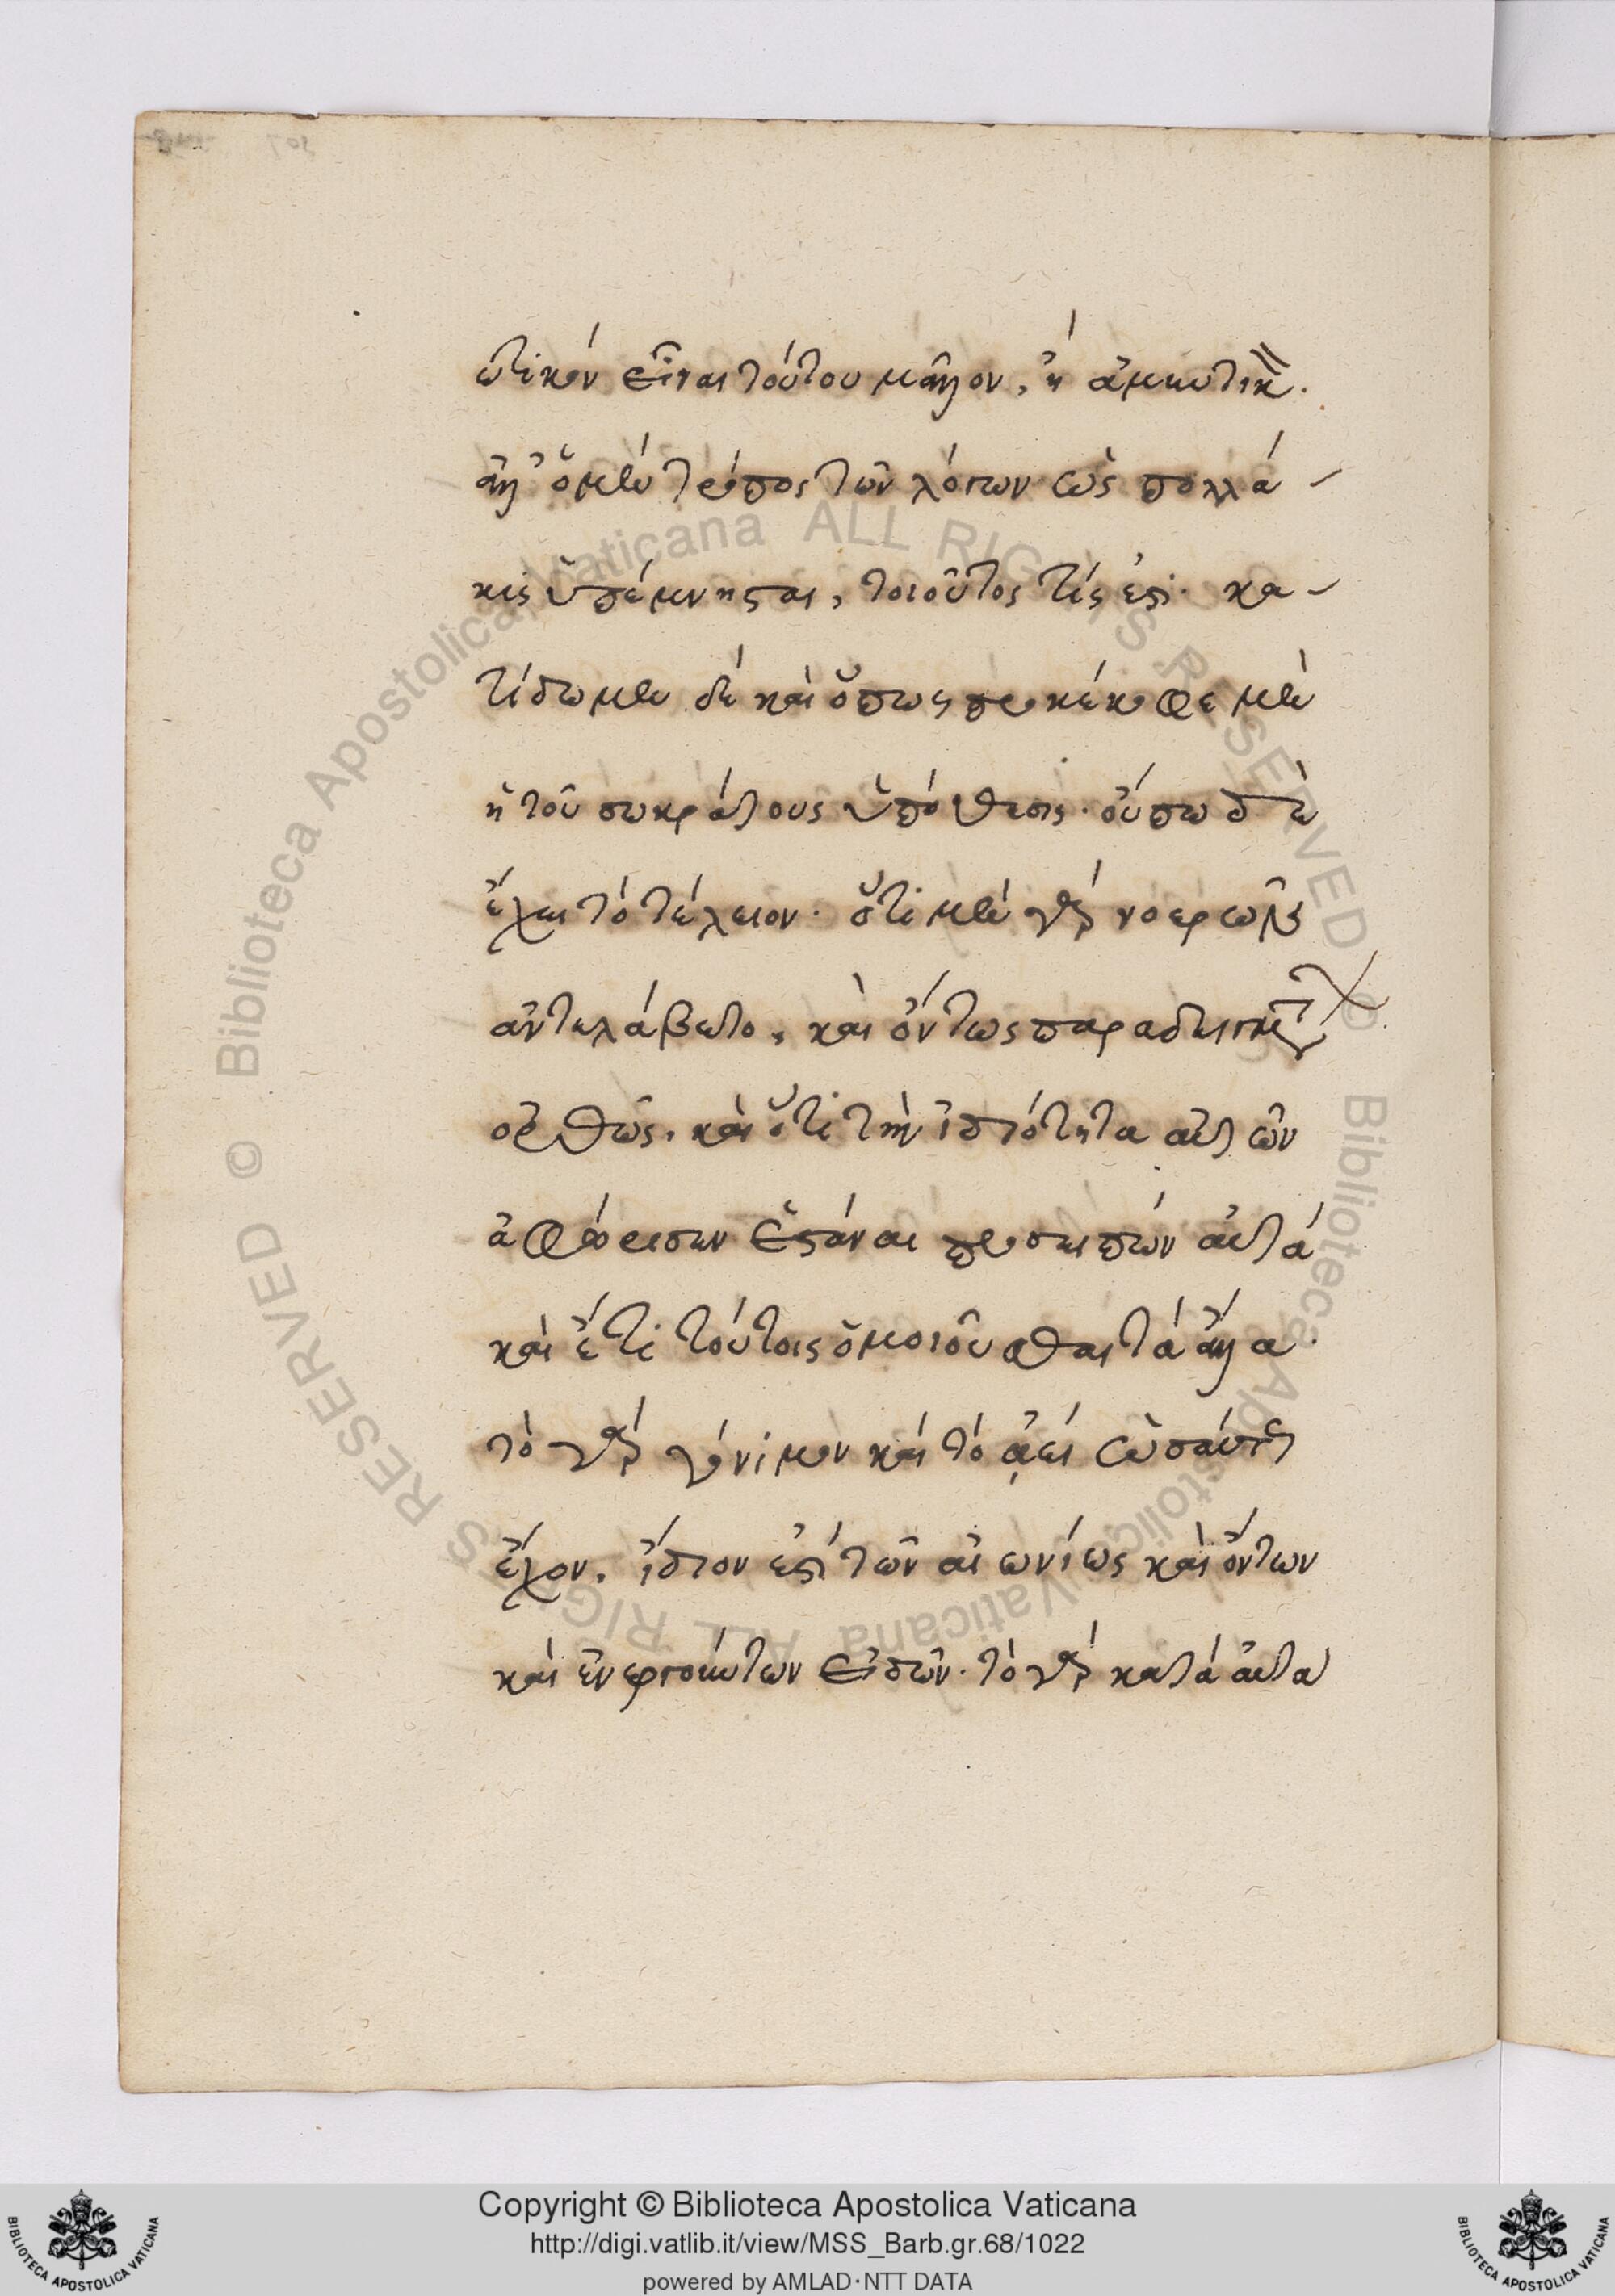 ωτικόν εἶναι τούτου μᾶλλον, ἢ ἀμυντικ
ἀλλ' ὁ μὲν τρόπος τῶν λόγων ὡς πολλά-
κις ὑπέμνησται, τοιοῦτος τίς ἐστι. κα-
τίδωμεν δὲ καὶ ὅπως προκέκοφε μὲν
ἡ τοῦ σωκράτους ὑπόθεσις. οὔπω δὲ
ἔχει τὸ τέλειον. ὅτι μὲν γὰρ νοερῶς
ἀντελάβετο, καὶ ὄντως παραδειγμ
ὀρθῶς. καὶ ὅτι τὴν ἰδιότητα αὐτῶν
ἀφώρισεν ἑστάναι προσειπών αὐτά
καὶ ἔτι τούτοις ὁμοιοῦσθαι τὰ ἄλλα.
τὸ γὰρ γόνιμον καὶ τὸ ἀεὶ ὡσαύτως
ἔχον, ἴδιον ἐστὶ τῶν αἰωνίως καὶ ὄντων
καὶ ἐνεργούντων εἰδῶν. τὸ γὰρ κατὰ αὐτὰ
Copyright © Biblioteca Apostolica Vaticana
http://digi.vatlib.it/view/MSS_Barb.gr.68/1022
powered by AMLAD·NTT DATA
BIBLIOTECA APOSTOLICA VATICANA
BIBLIOTECA APOSTOLICA VATICANA
© Biblioteca Apostolica Vaticana ALL RIGHTS RESERVED
© Biblioteca Apostolica Vaticana ALL RIGHTS RESERVED